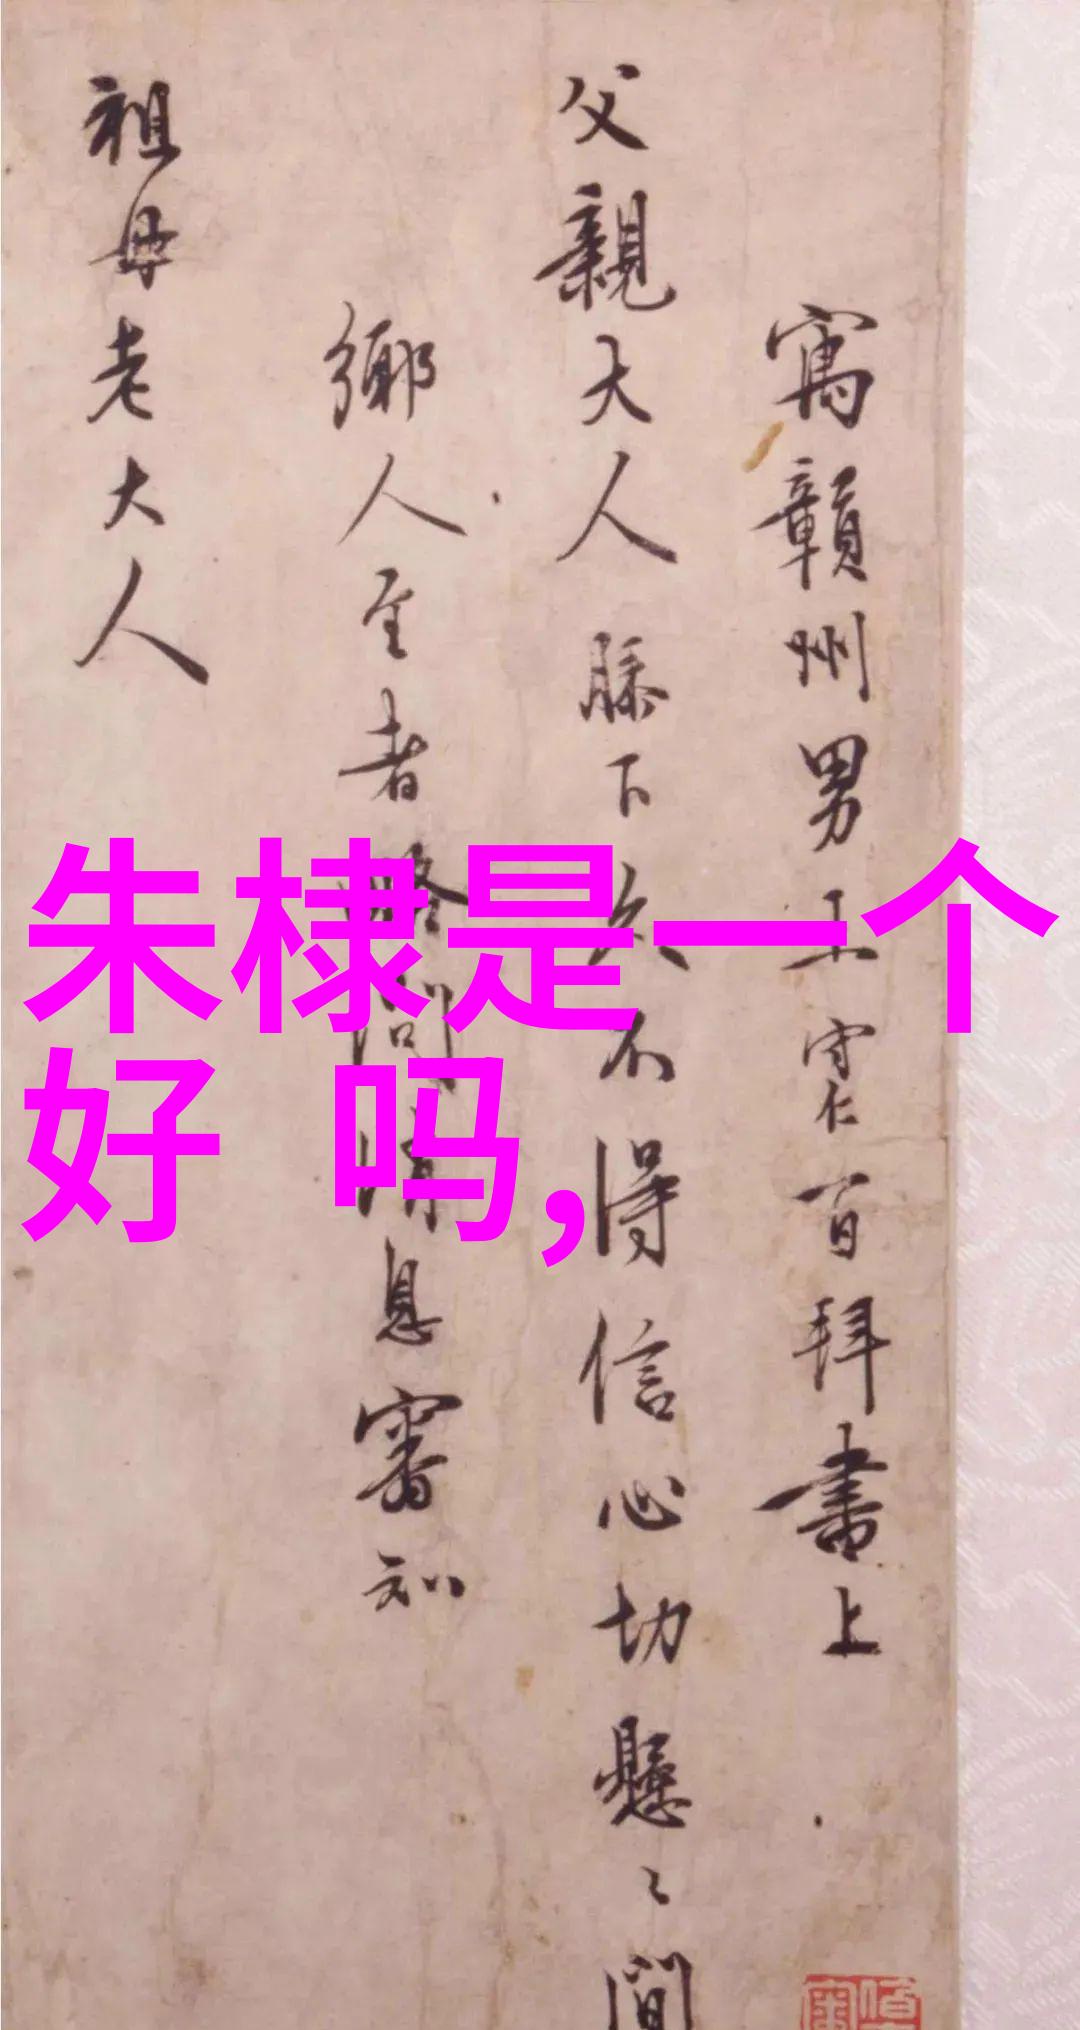 寓贛州男王守仁百拜書上
父親大人膝下久不得信心切懸〻間
鄉人至者略問消息審知
祖母老大人
朱棣是一个
好 吗,